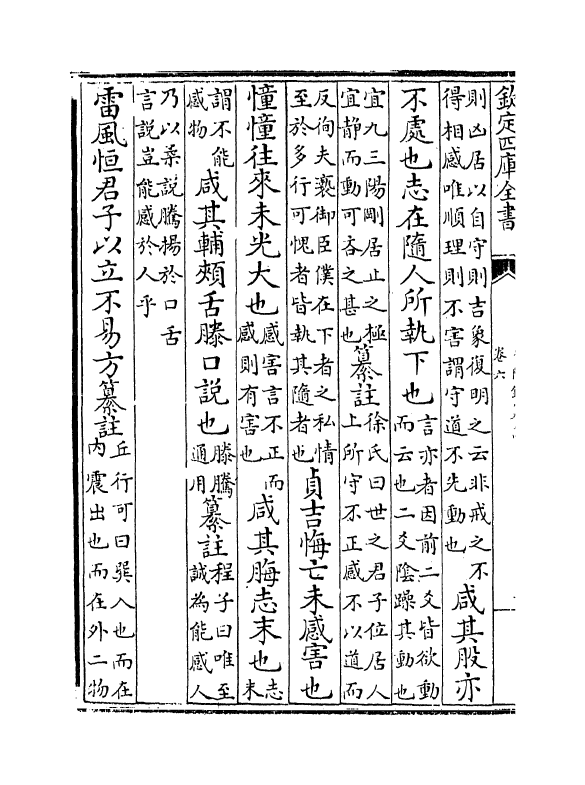 欽定四庫全書
卷六
則凶居以自守則吉象復明之云非戒之不
得相感唯順理則不害謂守道不先動也
咸其股亦
不處也志在隨人所執下也
言亦者因前二爻皆欲動
而云也二爻陰躁其動也
宜九三陽剛居止之極
宜静而動可吝之甚也
纂註
徐氏曰世之君子位居人
上所守不正感不以道而
反徇夫䙝御臣僕在下者之私情
至於多行可愧者皆執其隨者也
貞吉悔亡未感害也
憧憧往來未光大也
感害言不正而
感則有害也
咸其脢志末也
志
末
謂不能
感物
咸其輔頰舌滕口說也
滕騰
通用
纂註
程子曰唯至
誠為能感人
乃以柔說騰揚於口舌
言說豈能感於人乎
雷風恒君子以立不易方
纂註
丘行可曰巽入也而在
内震出也而在外二物